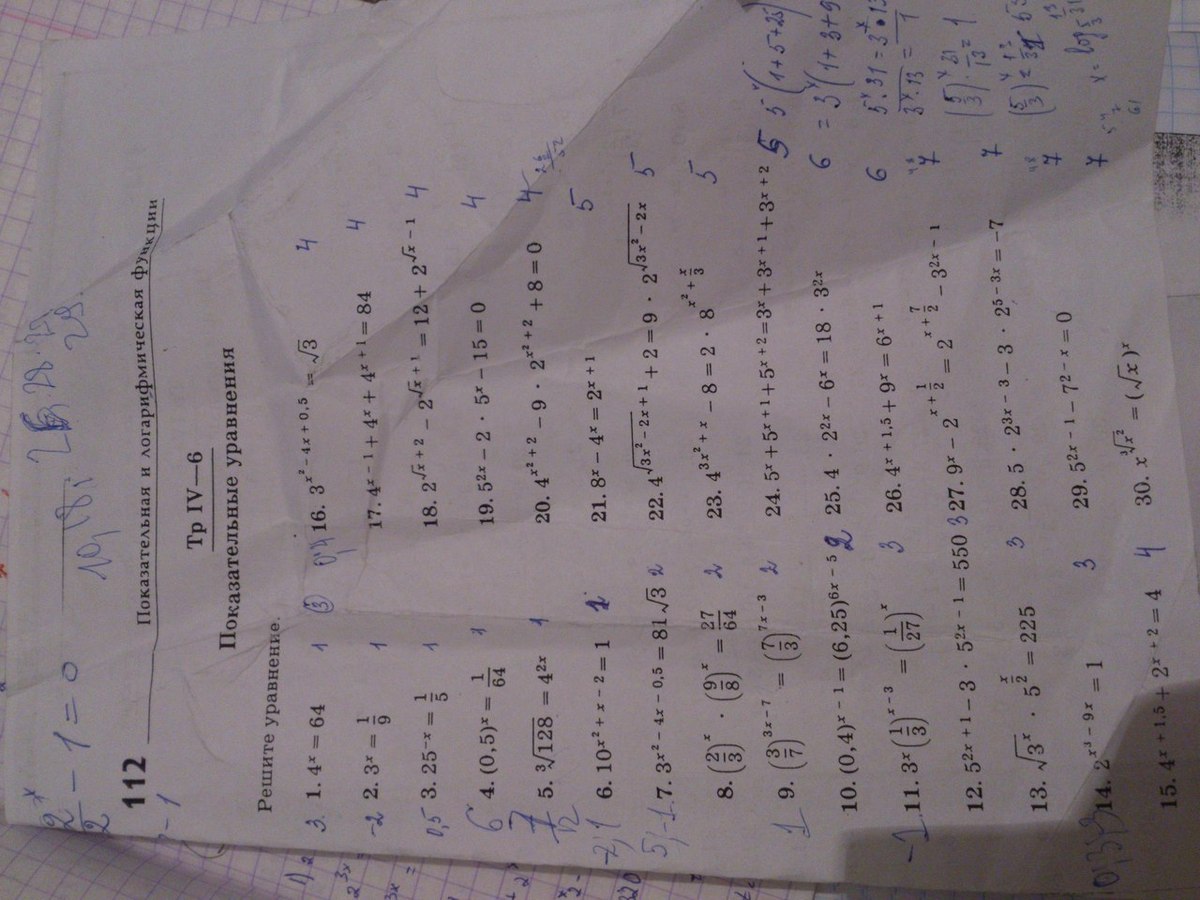 112
Показательная и логарифмическая функции
Тр IV—6
Показательные уравнения
Решите уравнение.
1. 4^x = 64 1
2. 3^x = 1/9 1
3. 25^{-x} = 1/5 1
4. (0,5)^x = 1/64 1
5. ∛128 = 4^{2x} 1
6. 10^{x^2 + x - 2} = 1
7. 3^{x^2 - 4x - 0,5} = 81√3 2
8. (2/3)^x · (9/8)^x = 27/64 2
9. (3/7)^{3x - 7} = (7/3)^{7x - 3} 2
10. (0,4)^{x - 1} = (6,25)^{6x - 5} 2
11. 3^x (1/3)^{x - 3} = (1/27)^x 3
12. 5^{2x + 1} - 3 · 5^{2x - 1} = 550 3
13. √3^x · 5^{x/2} = 225 3
14. 2^{x^3 - 9x} = 1 3
15. 4^{x + 1,5} + 2^{x + 2} = 4 4
16. 3^{x^2 - 4x + 0,5} = √3 4
17. 4^{x - 1} + 4^x + 4^{x + 1} = 84 4
18. 2^{√x + 2} - 2^{√x + 1} = 12 + 2^{√x - 1} 4
19. 5^{2x} - 2 · 5^x - 15 = 0 4
20. 4^{x^2 + 2} - 9 · 2^{x^2 + 2} + 8 = 0 4
21. 8^x - 4^x = 2^{x + 1} 5
22. 4^{√(3x^2 - 2x) + 1} + 2 = 9 · 2^{√(3x^2 - 2x)} 5
23. 4^{3x^2 + x} - 8 = 2 · 8^{x^2 + x/3} 5
24. 5^x + 5^{x + 1} + 5^{x + 2} = 3^x + 3^{x + 1} + 3^{x + 2} 5
25. 4 · 2^{2x} - 6^x = 18 · 3^{2x} 6
26. 4^{x + 1,5} + 9^x = 6^{x + 1} 6
27. 9^x - 2^{x + 1/2} = 2^{x + 7/2} - 3^{2x - 1} 7
28. 5 · 2^{3x - 3} - 3 · 2^{5 - 3x} = -7 7
29. 5^{2x - 1} - 7^{2 - x} = 0 7
30. x^{∛x^2} = (√x)^x 7
3
-2
0,5
6
7/12
-2; 1
5; -1
1
-1
0; 3; -3
2^x/2 - 1 = 0
5^x (1+5+25)
= 3^x (1+3+9
5^x · 31 = 3^x · 13